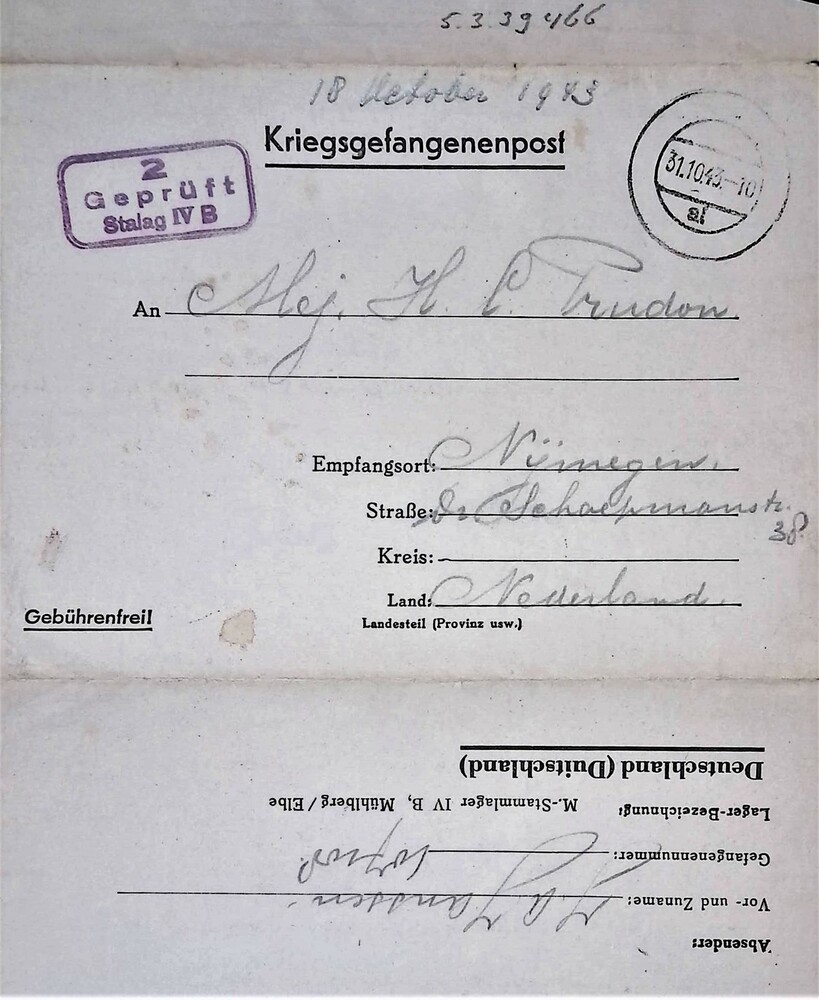 5.3.39466
18 October 1943
Kriegsgefangenenpost
2
Geprüft
Stalag IV B
31.10.43.-10
al
An Mej. H. C. Trudon.
Empfangsort: Nijmegen.
Straße: Dr. Schaepmanstr.
38
Kreis:
Land: Nederland.
Landesteil (Provinz usw.)
Gebührenfrei!
Absender:
Vor- und Zuname: Janssen
Gefangenennummer:
Lager-Bezeichnung: M.-Stammlager IV B, Mühlberg/Elbe
Deutschland (Duitschland)